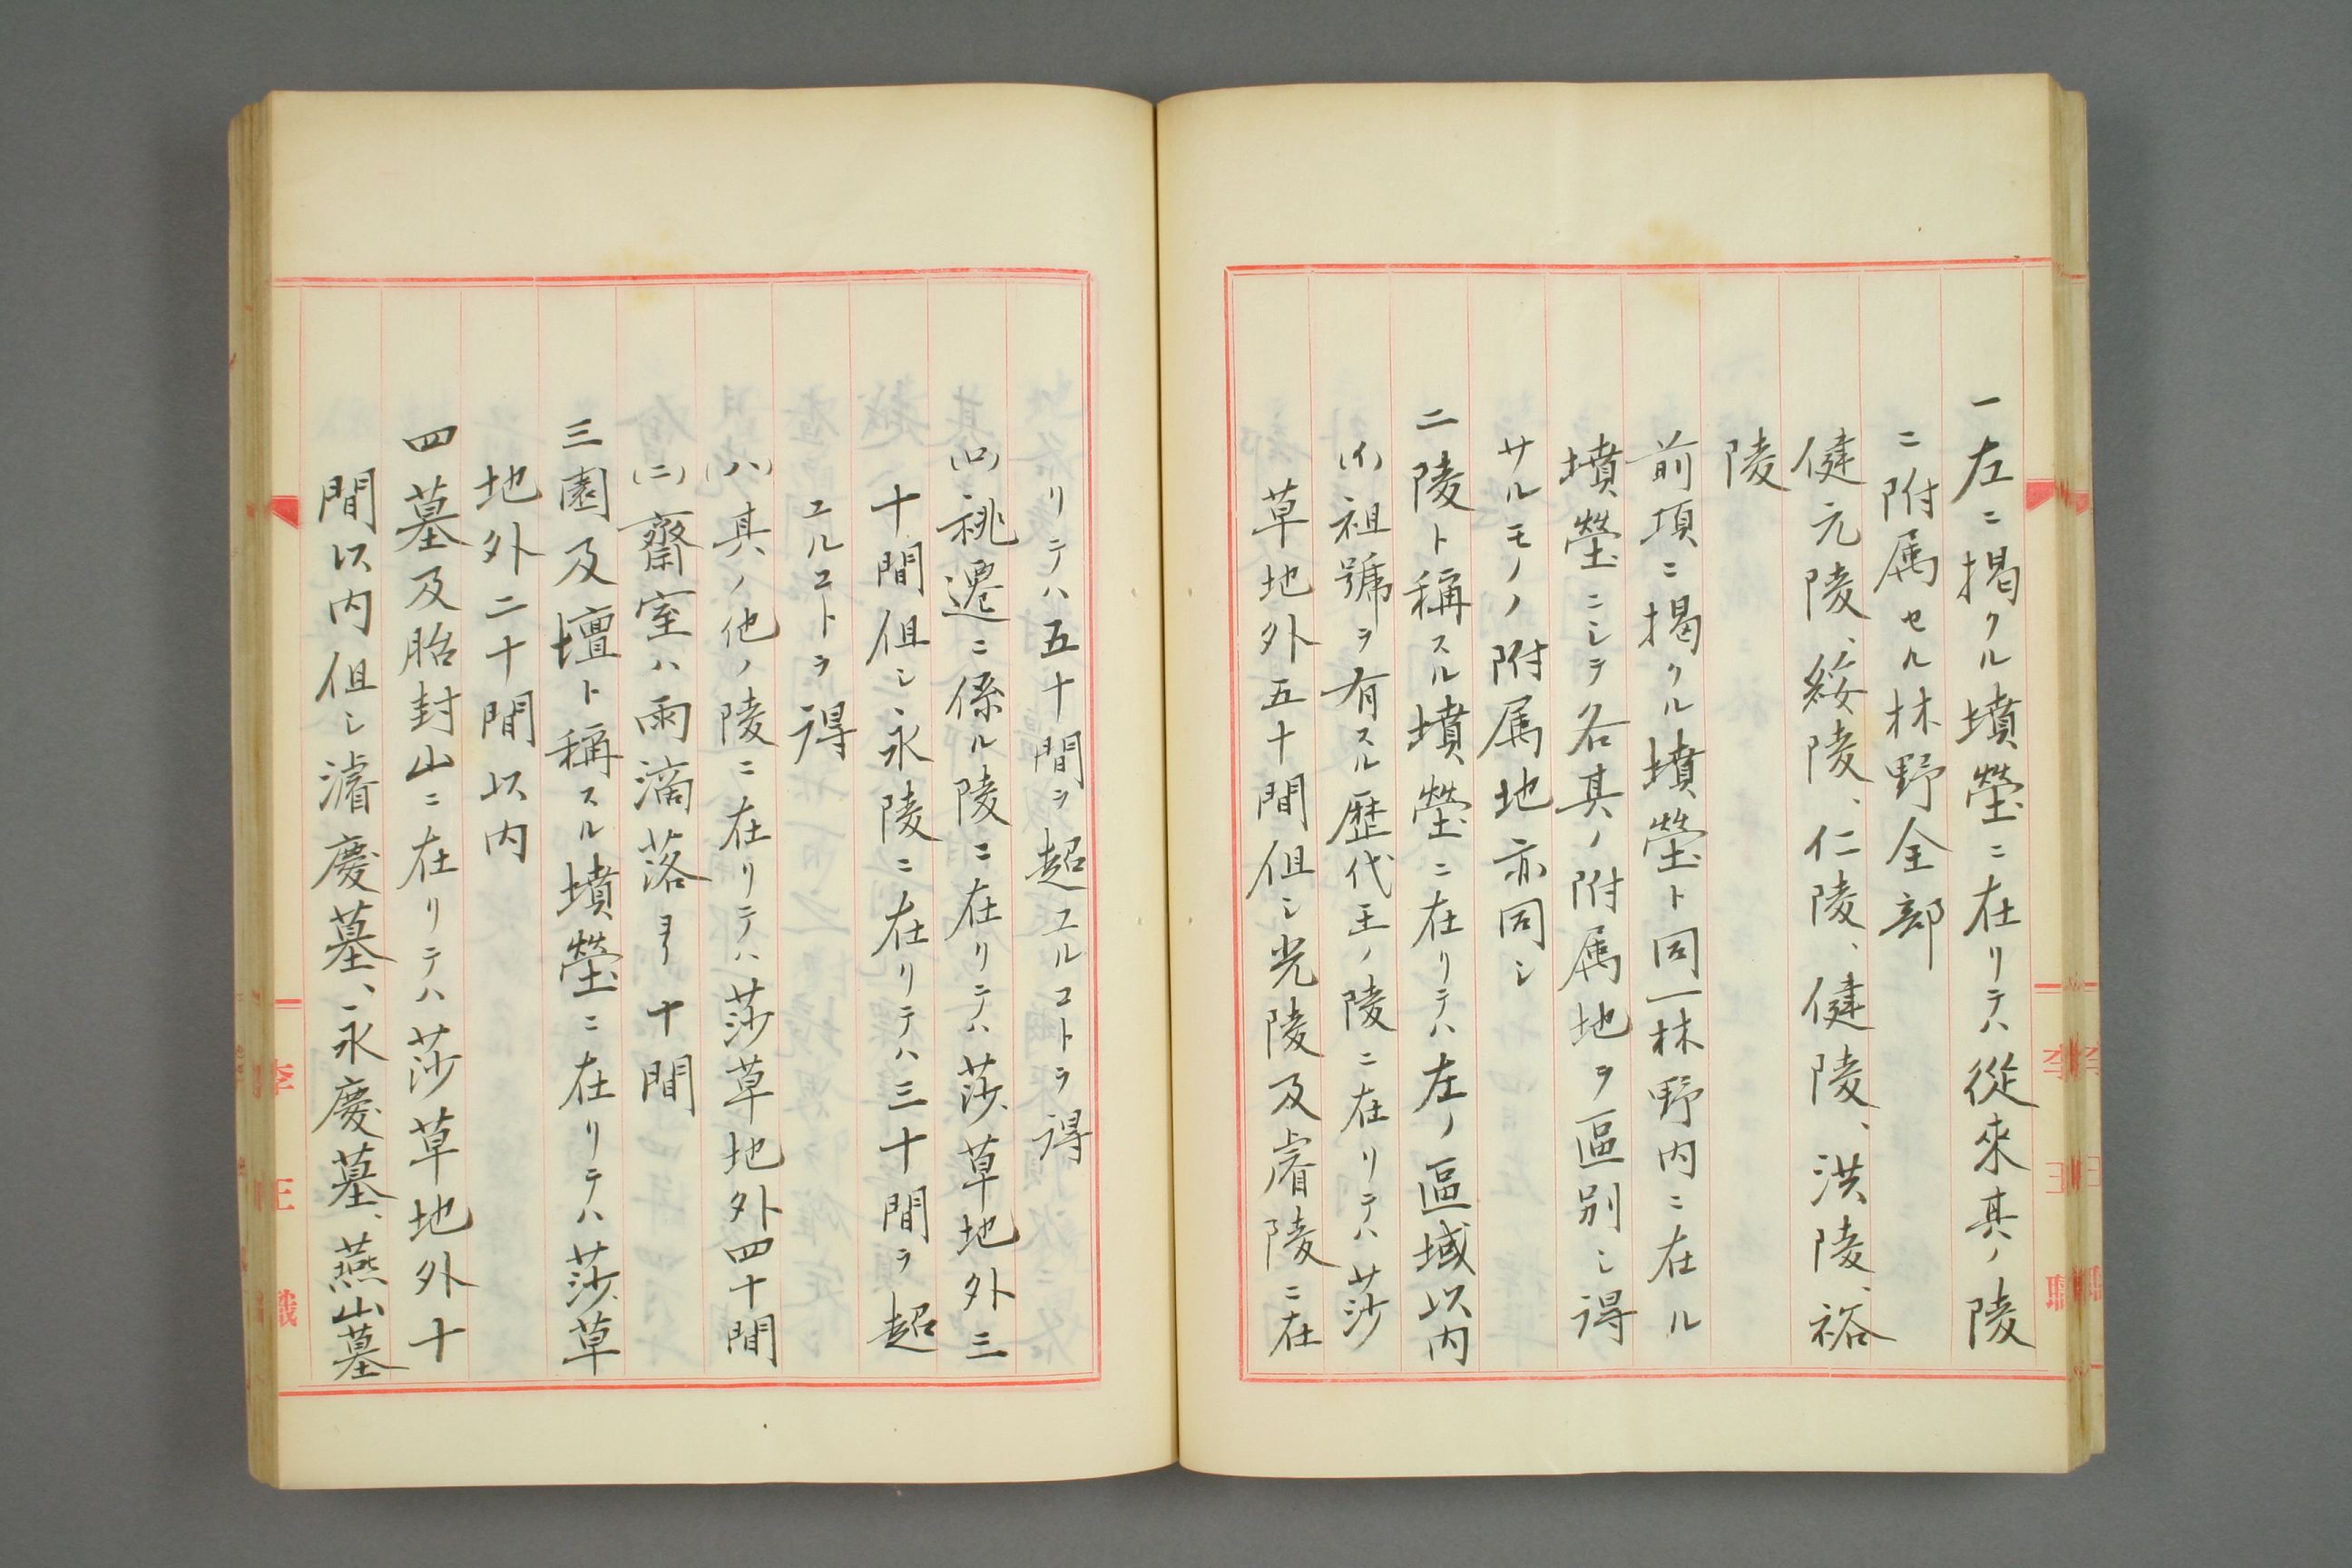 一左ニ掲クル墳塋ニ在リテハ從來其ノ陵
ニ附属セル林野全部
健元陵、綏陵、仁陵、健陵、洪陵、裕
陵
前項ニ掲クル墳塋ト同一林野内ニ在ル
墳塋ニシテ各其ノ附属地ヲ區別シ得
サルモノノ附属地亦同シ
二陵ト稱スル墳塋ニ在リテハ左ノ區域以内
(イ)祖號ヲ有スル歴代王ノ陵ニ在リテハ莎
草地外五十間但シ光陵及睿陵ニ在
リテハ五十間ヲ超ユルコトヲ得
(ロ)祧遷ニ係ル陵ニ在リテハ莎草地外三
十間但シ永陵ニ在リテハ三十間ヲ超
ユルコトヲ得
(ハ)其ノ他ノ陵ニ在リテハ莎草地外四十間
(ニ)齋室ハ雨滴落ヨリ十間
三園及壇ト稱スル墳塋ニ在リテハ莎草
地外二十間以内
四墓及胎封山ニ在リテハ莎草地外十
間以内但シ濬慶墓、永慶墓、燕山墓
李王職